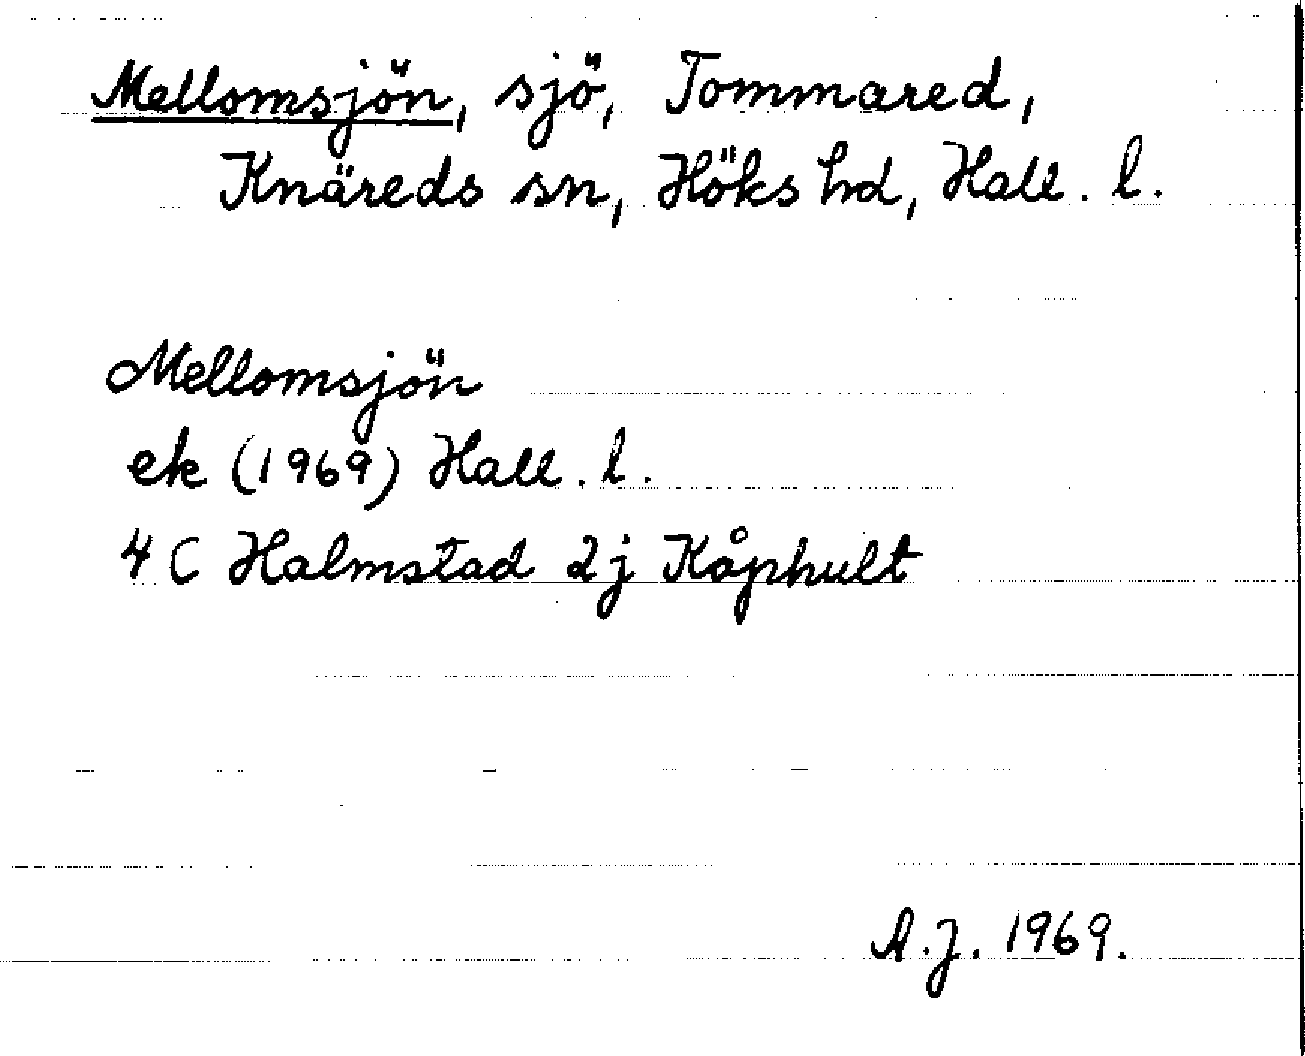 Mellomsjön, sjö, Tommared,
Knäreds sn, Höks hd, Hall. l.
Mellomsjön
ek (1969) Hall. l.
4 C Halmstad 2 j Kåphult
A.J. 1969.